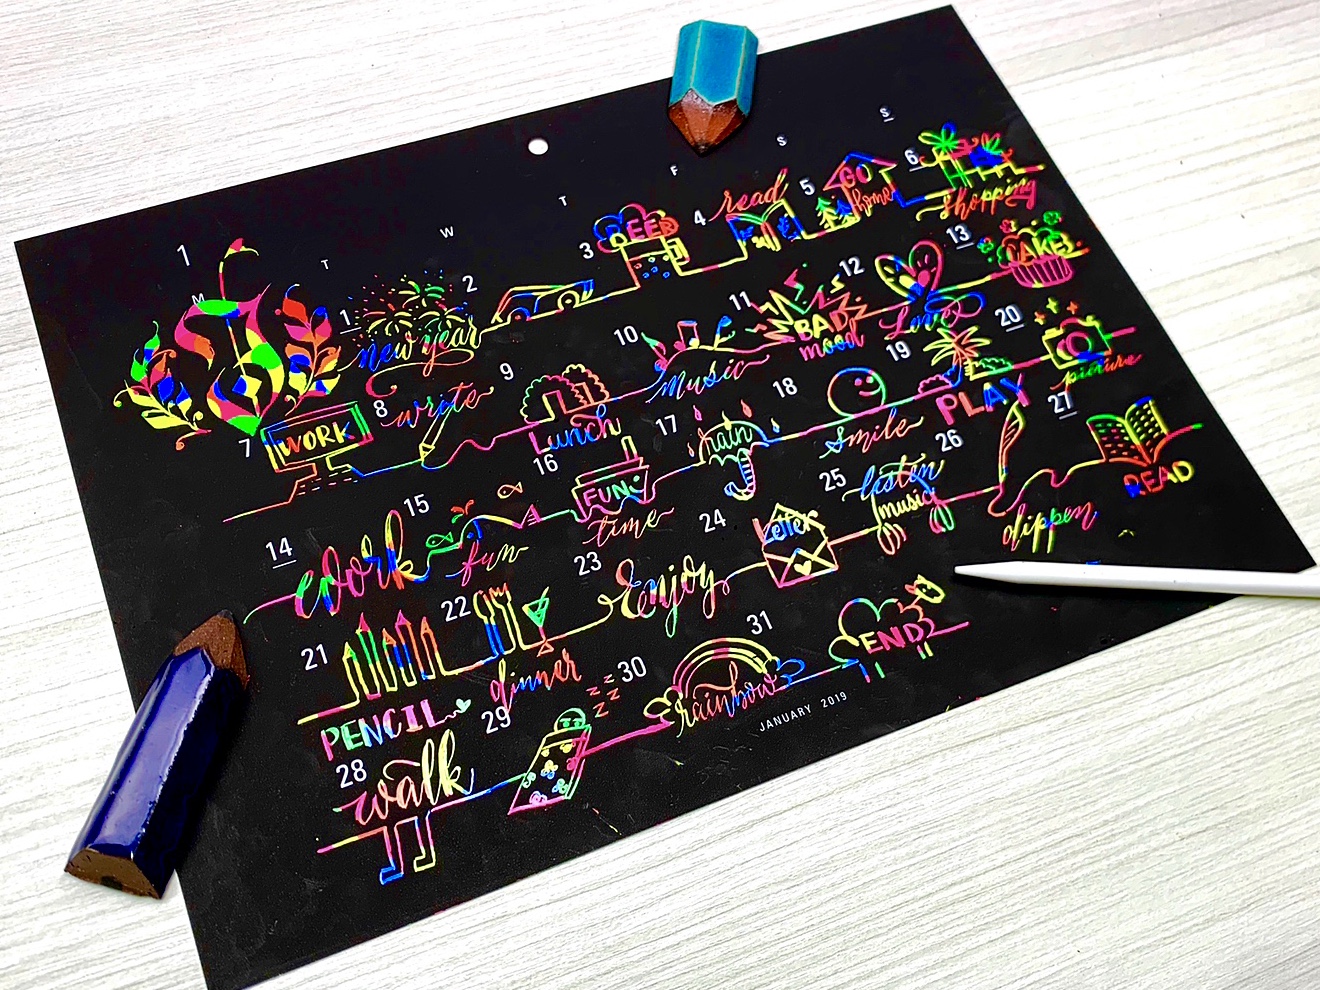 1
M T W T F S S
1 new year
2
3 BEER
4 read
5 GO home
6 shopping
7 WORK
8 write
9 Lunch
10 music
11 BAD mood
12 Love
13 CAKE
14 Work
15 fun
16 FUN time
17 rain
18 smile
19 PLAY
20 picture
21 PENCIL
22 dinner
23 Enjoy
24 Letter
25 listen music
26 dippen
27 READ
28 walk
29 z z z
30 rainbow
31 END
JANUARY 2019